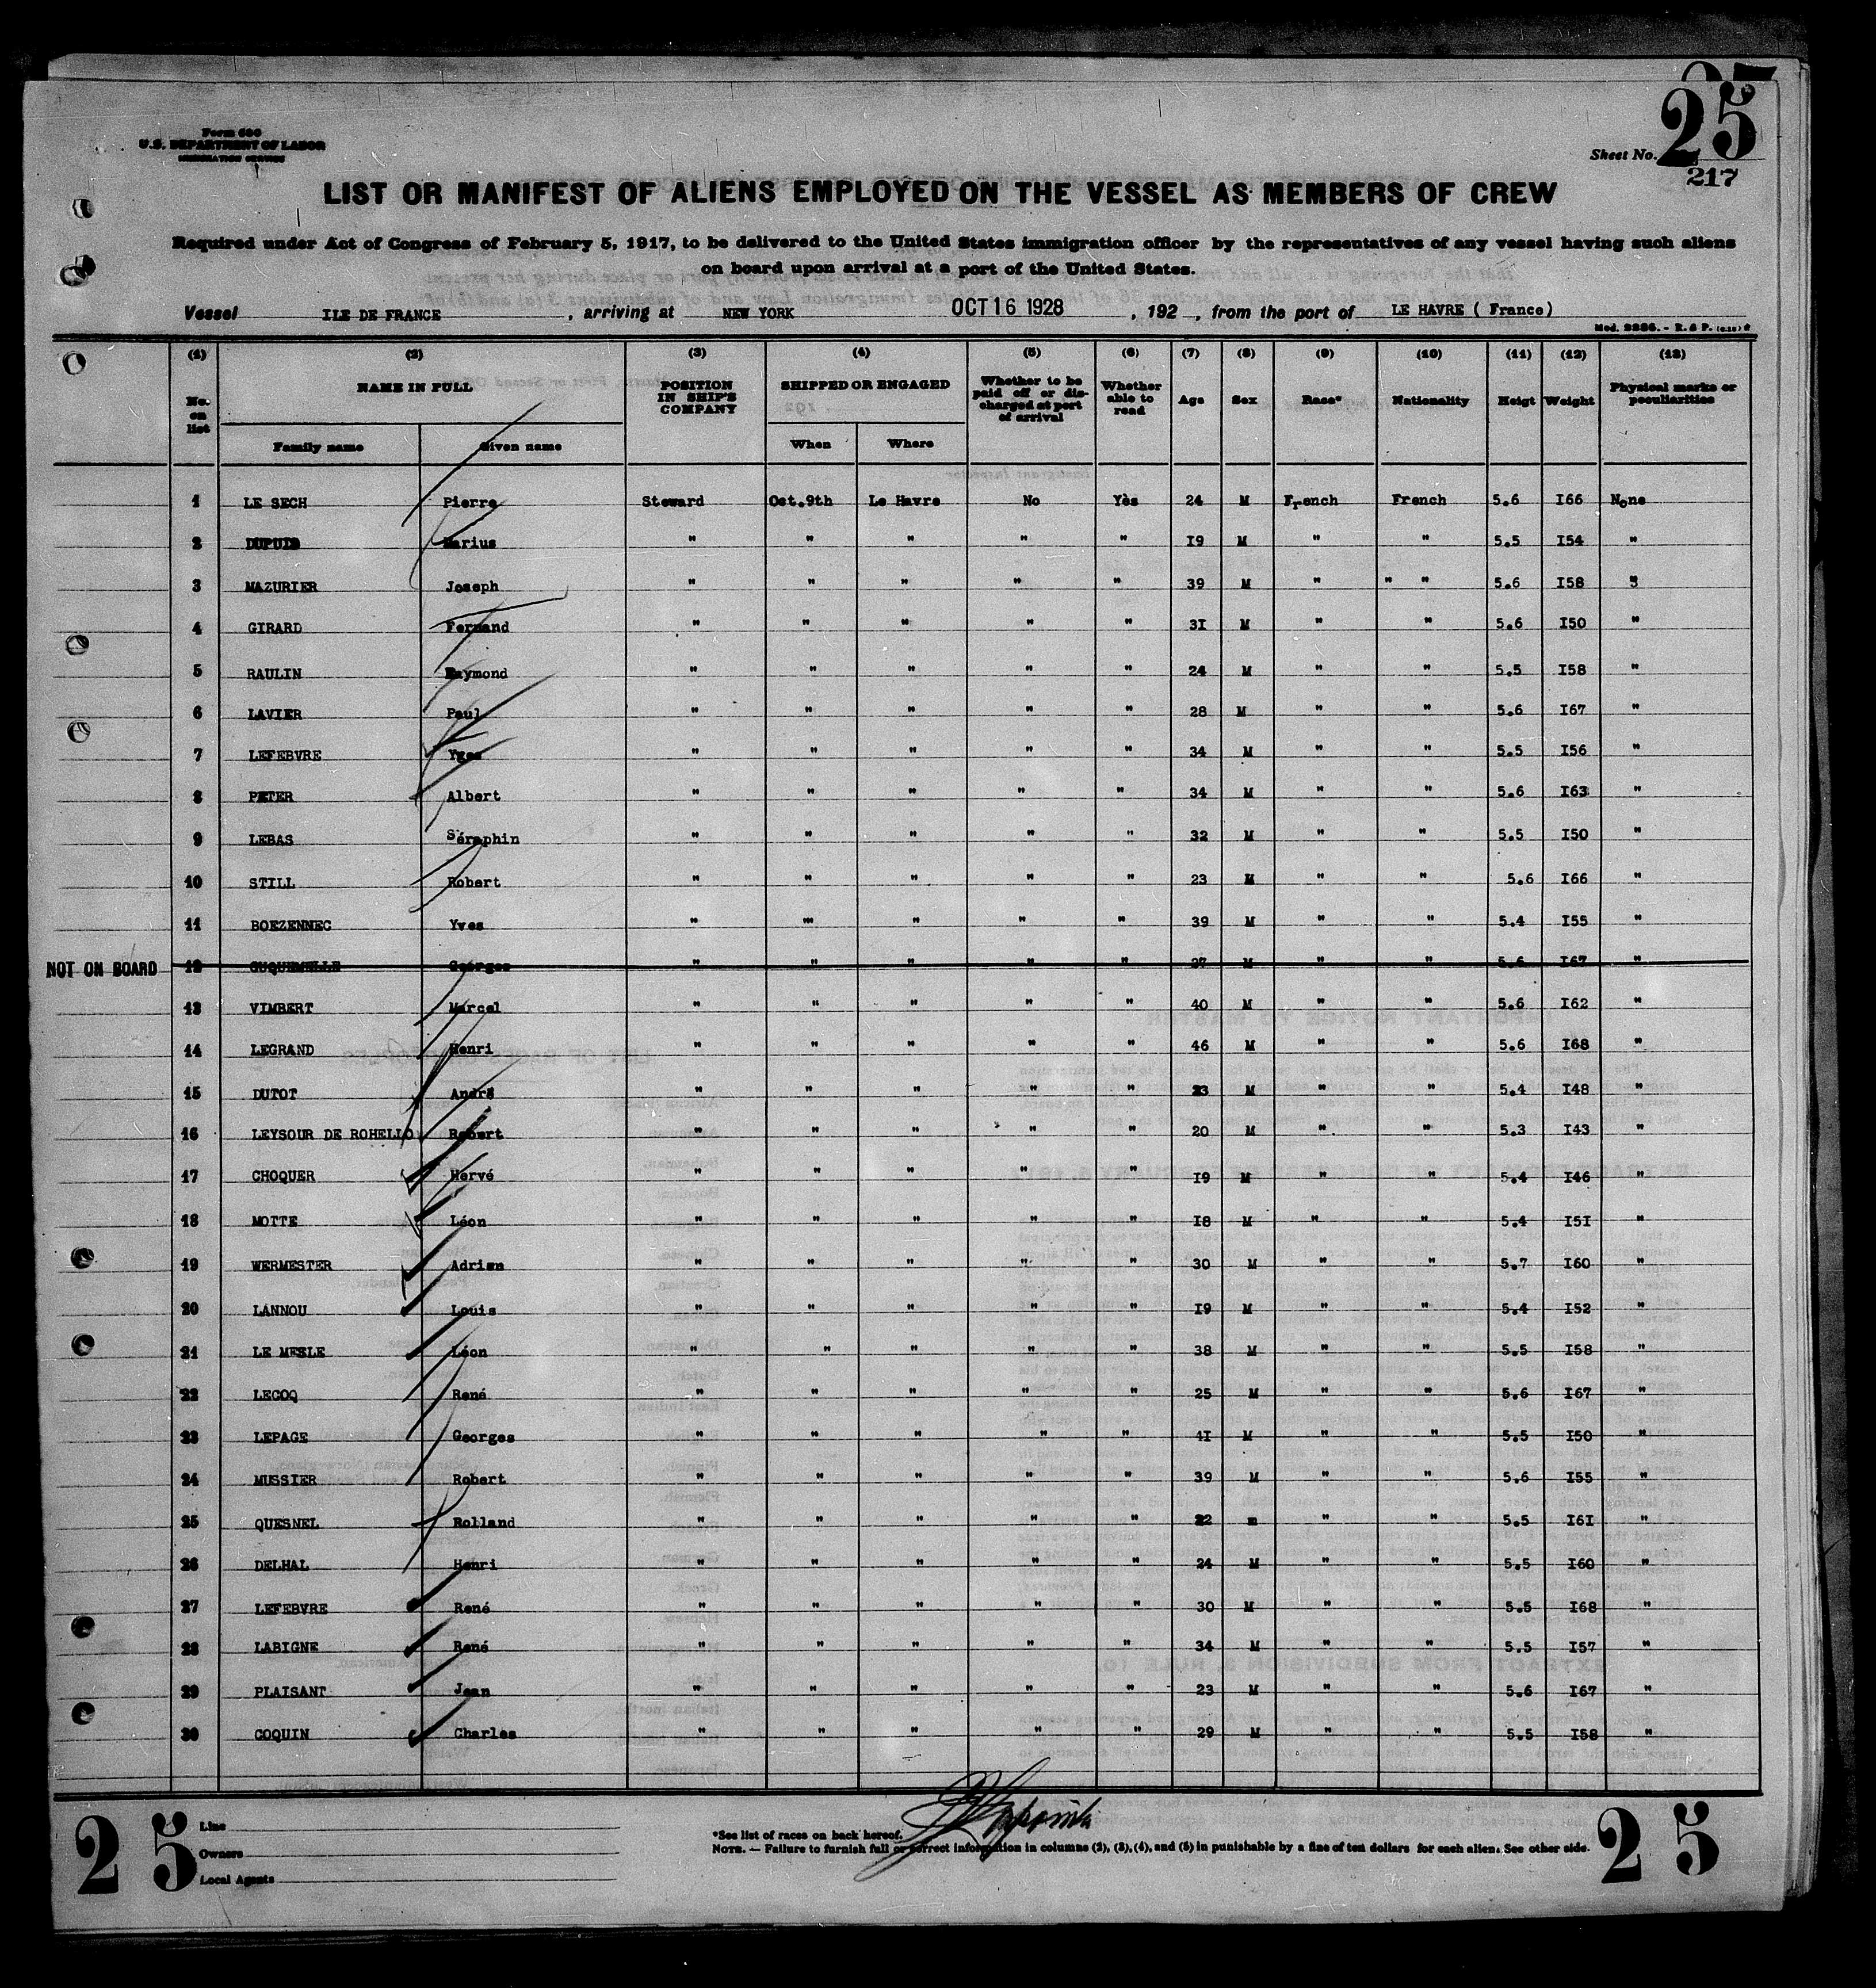 25
Form 680
U.S. DEPARTMENT OF LABOR
IMMIGRATION SERVICE
Sheet No. 25
217
LIST OR MANIFEST OF ALIENS EMPLOYED ON THE VESSEL AS MEMBERS OF CREW
Required under Act of Congress of February 5, 1917, to be delivered to the United States immigration officer by the representatives of any vessel having such aliens
on board upon arrival at a port of the United States.
Vessel ILE DE FRANCE , arriving at NEW YORK OCT 16 1928 , 192 , from the port of LE HAVRE ( France)
Mod. 2286. - R. & P.
(1) (2) (3) (4) (5) (6) (7) (8) (9) (10) (11) (12) (13)
No. on list NAME IN FULL POSITION IN SHIP'S COMPANY SHIPPED OR ENGAGED Whether to be paid off or discharged at port of arrival Whether able to read Age Sex Race* Nationality Heigt Weight Physical marks or peculiarities
Family name Given name When Where
1 LE SECH Pierre Steward Oct.9th Le Havre No Yès 24 M French French 5.6 I66 None
2 DUPUIS Marius " " " " " I9 M " " 5.5 I54 "
3 MAZURIER Joseph " " " " " 39 M " " " 5.6 I58 "
4 GIRARD Fernand " " " " " 3I M " " 5.6 I50 "
5 RAULIN Raymond " " " " " 24 M " " 5.5 I58 "
6 LAVIER Paul " " " " " 28 M " " 5.6 I67 "
7 LEFEBVRE Yves " " " " " 34 M " " 5.5 I56 "
8 PETER Albert " " " " " 34 M " " 5.6 I63 "
9 LEBAS Séraphin " " " " " 32 M " " 5.5 I50 "
10 STILL Robert " " " " " 23 M " " 5.6 I66 "
11 BOEZENNEC Yves " "" " " " 39 M " " 5.4 I55 "
NOT ON BOARD 12 Georges " " " " " 27 M " " 5.6 I67 "
13 VIMBERT Marcel " " " " " 40 M " " 5.6 I62 "
14 LEGRAND Henri " " " " " 46 M " " 5.6 I68 "
15 DUTOT André " " " " " 23 M " " 5.4 I48 "
16 LEYSOUR DE ROHELLO Robert " " " " " 20 M " " 5.3 I43 "
17 CHOQUER Hervé " " " " " I9 M " " 5.4 I46 "
18 MOTTE Léon " " " " " I8 M " " 5.4 I5I "
19 WERMESTER Adrien " " " " " 30 M " " 5.7 I60 "
20 LANNOU Louis " " " " " I9 M " " 5.4 I52 "
21 LE MESLE Léon " " " " " 38 M " " 5.5 I58 "
22 LECOQ René " " " " " 25 M " " 5.6 I67 "
23 LEPAGE Georges " " " " " 4I M " " 5.5 I50 "
24 MUSSIER Robert " " " " " 39 M " " 5.6 I55 "
25 QUESNEL Rolland " " " " " 22 m " " 5.5 I6I "
26 DELHAL Henri " " " " " 24 M " " 5.5 I60 "
27 LEFEBVRE René " " " " " 30 M " " 5.5 I68 "
28 LABIGNE René " " " " " 34 M " " 5.5 I57 "
29 PLAISANT Jean " " " " " 23 M " " 5.6 I67 "
30 COQUIN Charles " " " " " 29 M " " 5.5 I58 "
25 Line
Owners
Local Agents
*See list of races on back hereof.
NOTE. — Failure to furnish full or correct information in columns (2), (3), (4), and (5) in punishable by a fine of ten dollars for each alien. See other side.
25